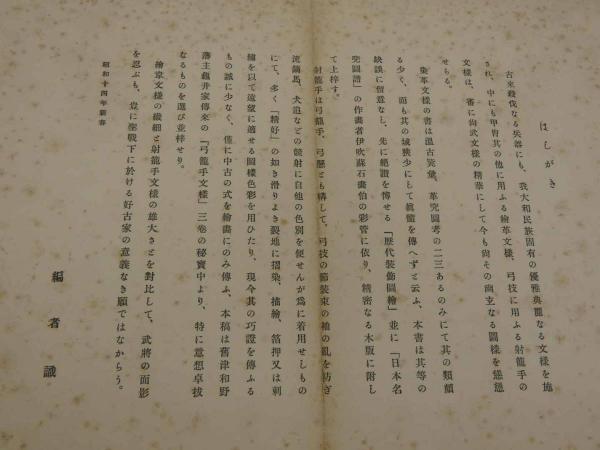 はしがき
古來殺伐なる兵器にも、我大和民族固有の優雅典麗なる文様を施
され、中にも甲冑其の他に用ふる繪革文様、弓技に用ふる射籠手の
文様は、審に尚武文様の精華にして今も尚その幽玄なる圖様を
せらる。
染革文様の書は温古冥彙、革究圖考の二三あるのみにて其の類頗
る少く、而も其の域狹少にして眞髓を傳へずと云ふ、本書は其等の
缺誤に留意なし、先に絶讚を博せる「歴代裝飾圖繪」並に「日本名
兜圖譜」の作畵者伊吹蘇石畵伯の彩管に依り、精密なる木版に附し
て上梓す。
射籠手は弓籠手、弓懸とも稱して、弓技の節裝束の袖の亂を防ぎ
流鏑馬、犬追などの競射に自他の色別を便せんが爲に着用せしもの
にて、多く「精好」の如き滑りよき裂地に摺染、描繪、箔押又は刺
繡を以て遠望に適せる圖樣色彩を用ひたり、現今其の巧證を傳ふる
もの誠に少なく、僅に中古の式を繪畵にのみ傳ふ、本稿は舊津和野
藩主龜井家傳來の「弓籠手文様」三卷の秘寶中より、特に意想卓拔
なるものを選び並梓せり。
繪韋文様の纎細と射籠手文様の雄大さとを對比して、武將の面影
を忍ぶも、豈に聖戰下に於ける好古家の意義なき願ではなからう。
昭和十四年新春
編者識